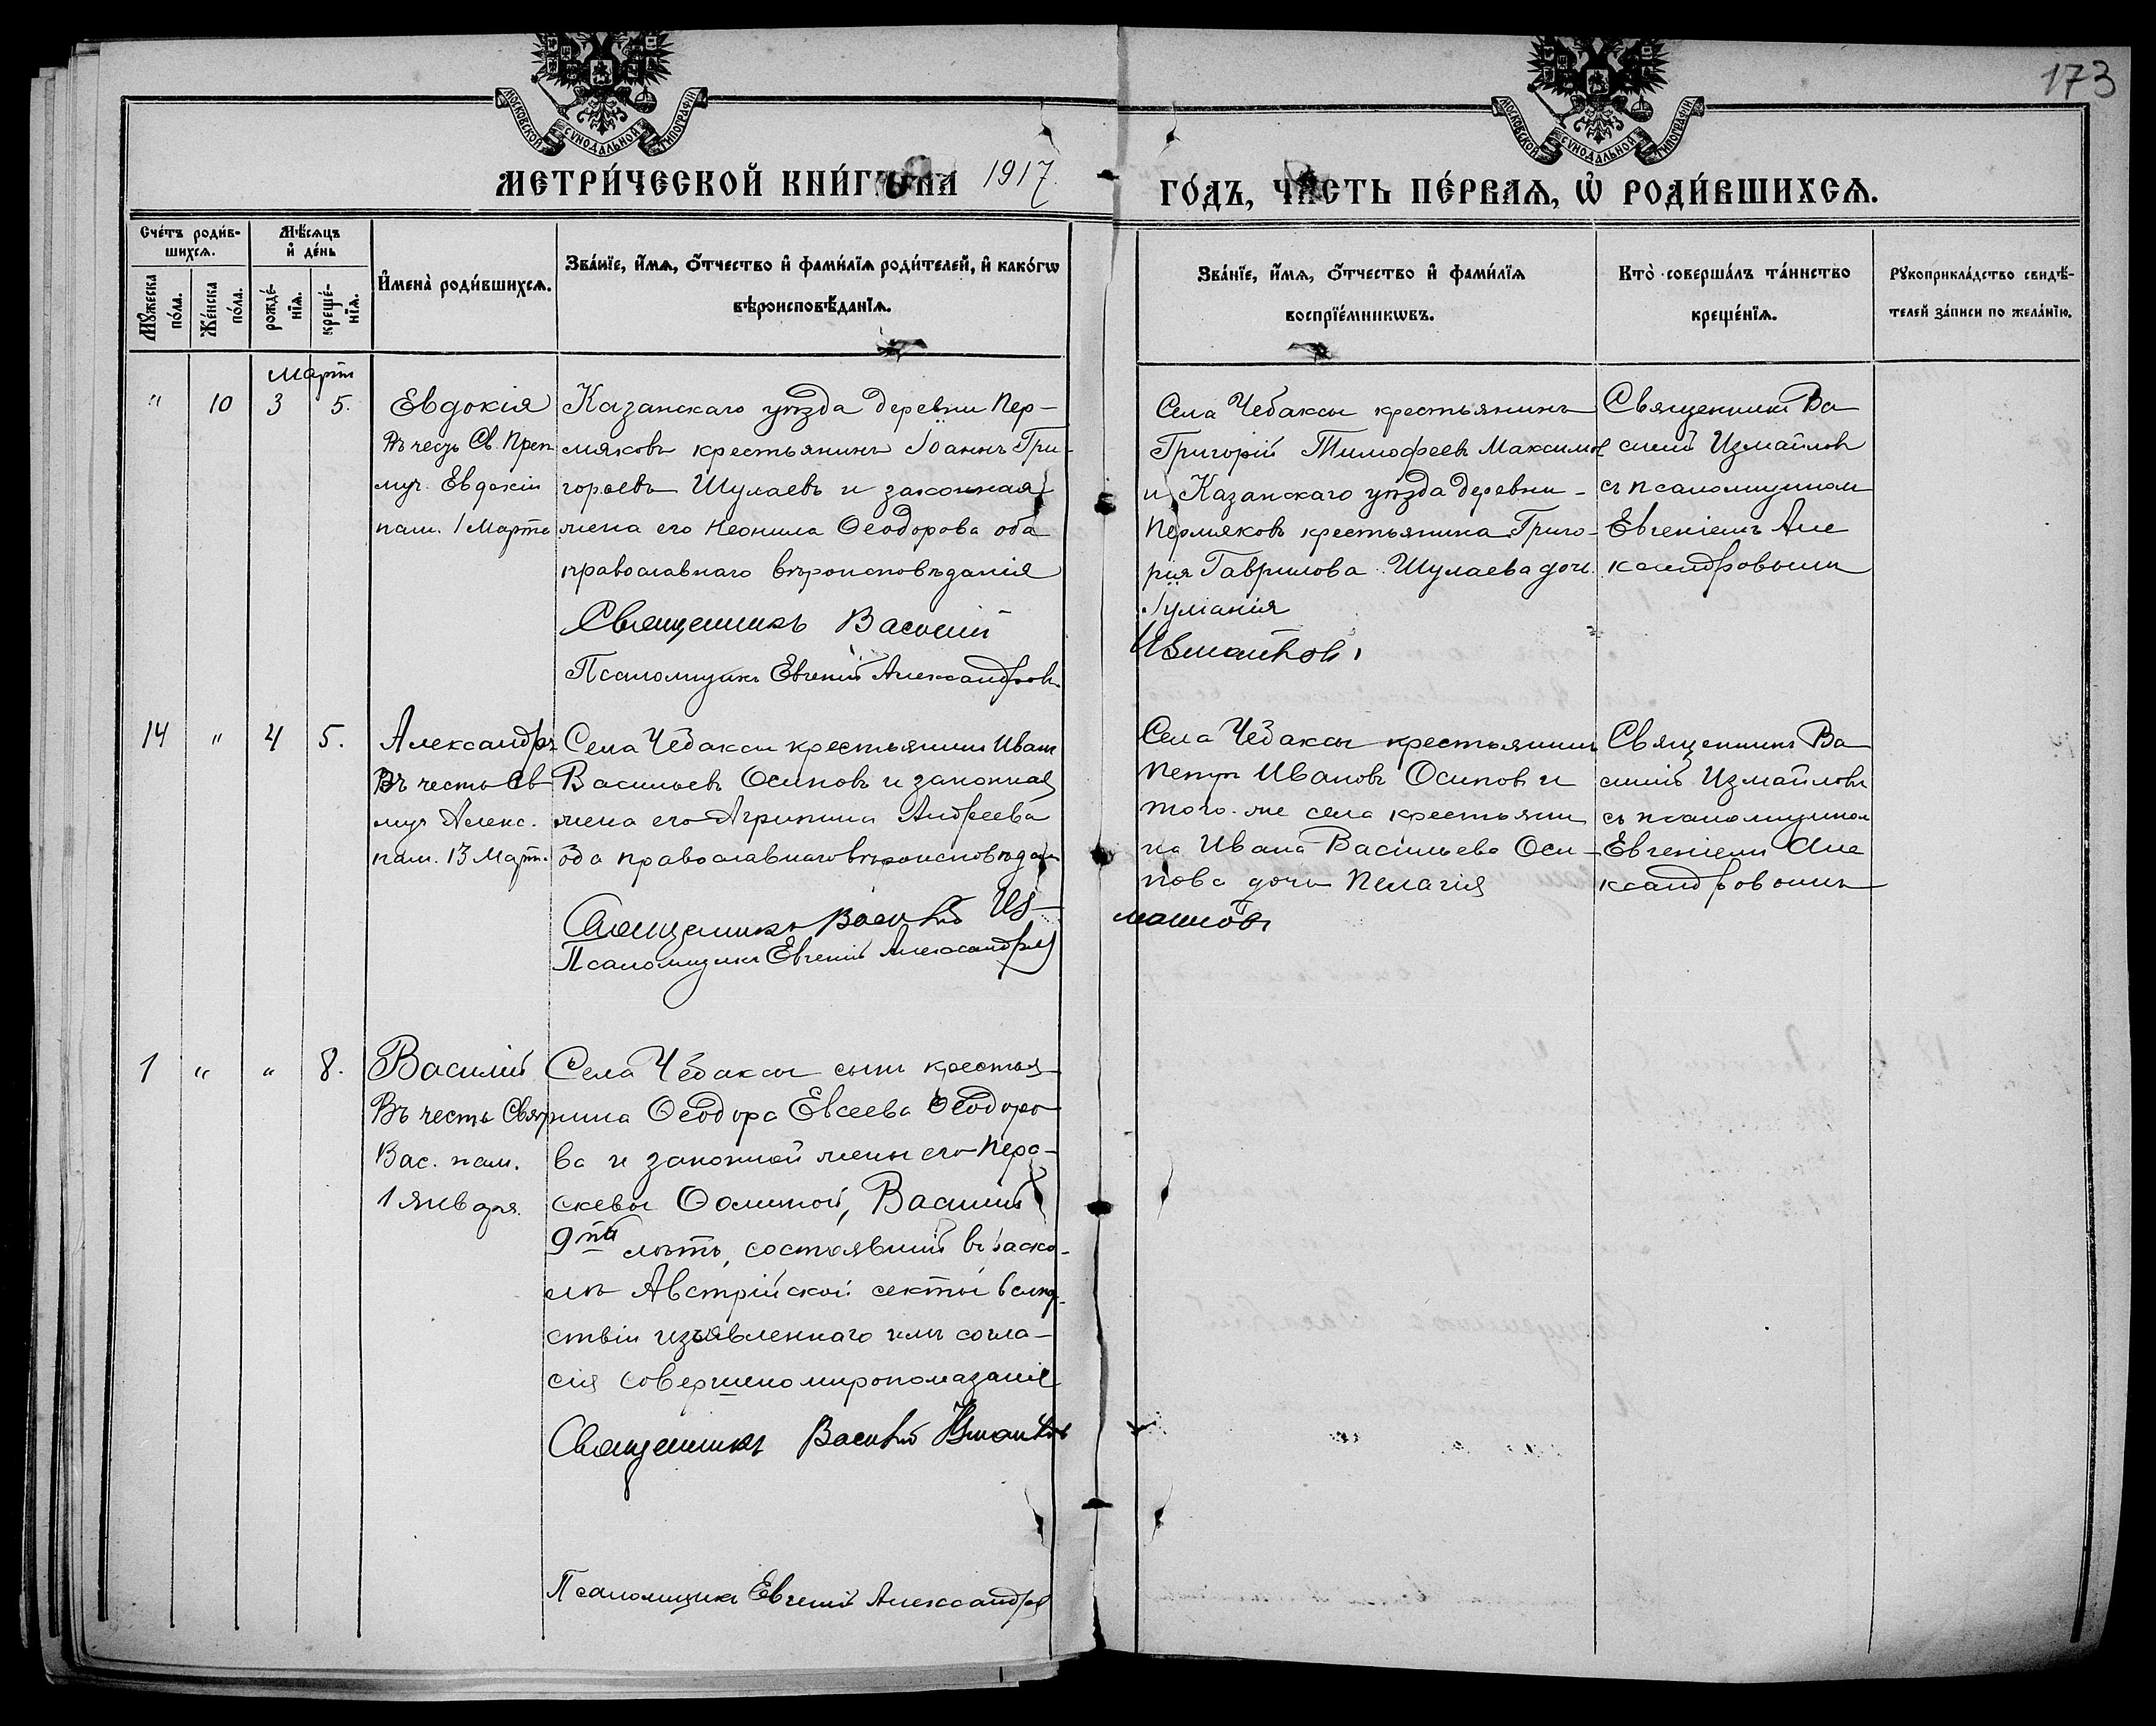 173
МОСКОВСКОЙ СѴНОДАЛЬНОЙ ТИПОГРАФІИ
МОСКОВСКОЙ СѴНОДАЛЬНОЙ ТИПОГРАФІИ
МЕТРИ́ЧЕСКОЙ КНИ́ГИ НА 1917 ГО́ДЪ, ЧАСТЬ ПЕ́РВАѦ, Ѽ РОДИ́ВШИХСѦ.
Сче́тъ роди́в-
шихсѧ.
Мꙋ́жеска по́ла.
Же́нска по́ла.
Мѣ́сѧцъ и҆ де́нь
рожде́-нїѧ.
креще́-нїѧ.
И҆мена̀ роди́вшихсѧ.
Зва́нїе, и҆́мѧ, ѻ҆́тчество и҆ фами́лїѧ роди́телей, и҆ како́гѡ
вѣроисповѣ́данїѧ.
Зва́нїе, и҆́мѧ, ѻ҆́тчество и҆ фами́лїѧ
воспрїе́мникѡвъ.
Кто̀ соверша́лъ та́инство
креще́нїѧ.
Рꙋкоприкла́дство свидѣ́-
телей за́писи по жела́нїю.
Мартъ
" 10 3 5.
Евдокія
Въ честь Св. Преп.
муч. Евдокіи
пам. 1 Марта
Казанскаго уѣзда деревни Пер-
мяковъ крестьянинъ Іоаннъ Гри-
горьевъ Шулаевъ и законная
жена его Неонила Ѳеодорова оба
православнаго вѣроисповѣданія
Священникъ Василий
Измайловъ
Псаломщикъ Евгеній Александровъ
Села Чебаксы крестьянинъ
Григорій Тимофеевъ Максимов
и Казанскаго уѣзда деревни
Пермяковъ крестьянина Григо-
рія Гаврилова Шулаева дочь
Іуліанія
Священникъ Ва
силій Измайловъ
съ псаломщикомъ
Евгеніемъ Але
ксандровымъ
14 " 4 5.
Александръ
Въ честь Св
муч Алекс.
пам. 13 Март.
Села Чебаксы крестьянинъ Иванъ
Васильевъ Осиповъ и законная
жена его Агрипина Андреева
оба православнаго вѣроисповѣдан
Священникъ Василій Из-
майловъ
Псаломщикъ Евгеній Александровъ
Села Чебаксы крестьянинъ
Петръ Ивановъ Осиповъ и
того-же села крестьяни
на Ивана Васильева Оси-
пова дочь Пелагія
Священникъ Ва
силій Измайловъ
съ псаломщикомъ
Евгеніемъ Але
ксандровымъ
1 " " 8.
Василій
Въ честь Свят
Вас. пам.
1 января.
Села Чебаксы сынъ крестья-
нина Ѳеодора Евсеева Ѳеодоро-
ва и законной жены его Пара-
скевы Ѳоминой, Василій
9ти лѣтъ, состоявшій въ раско-
лѣ Австрійской секты вслѣд-
ствіи изъявленнаго имъ согла-
сія совершено миропомазаніе
Священникъ Василій Измайловъ
Псаломщикъ Евгеній Александровъ